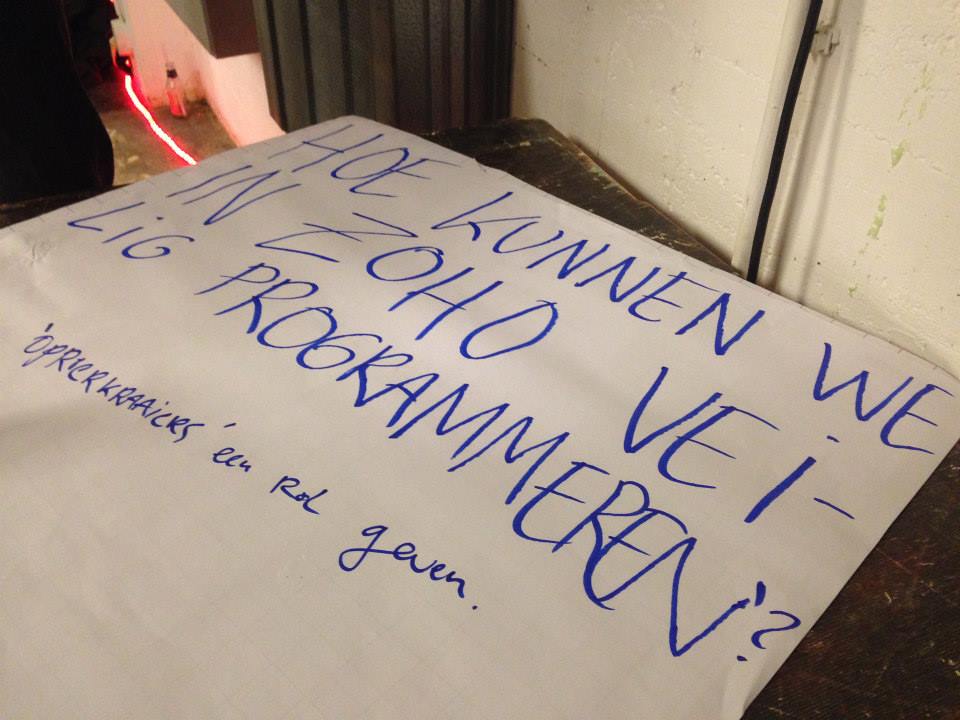 HOE KUNNEN WE
IN ZOHO VEi-
LiG PROGRAMMEREN'?
'OPROERKRAAIERS' een Rol geven.